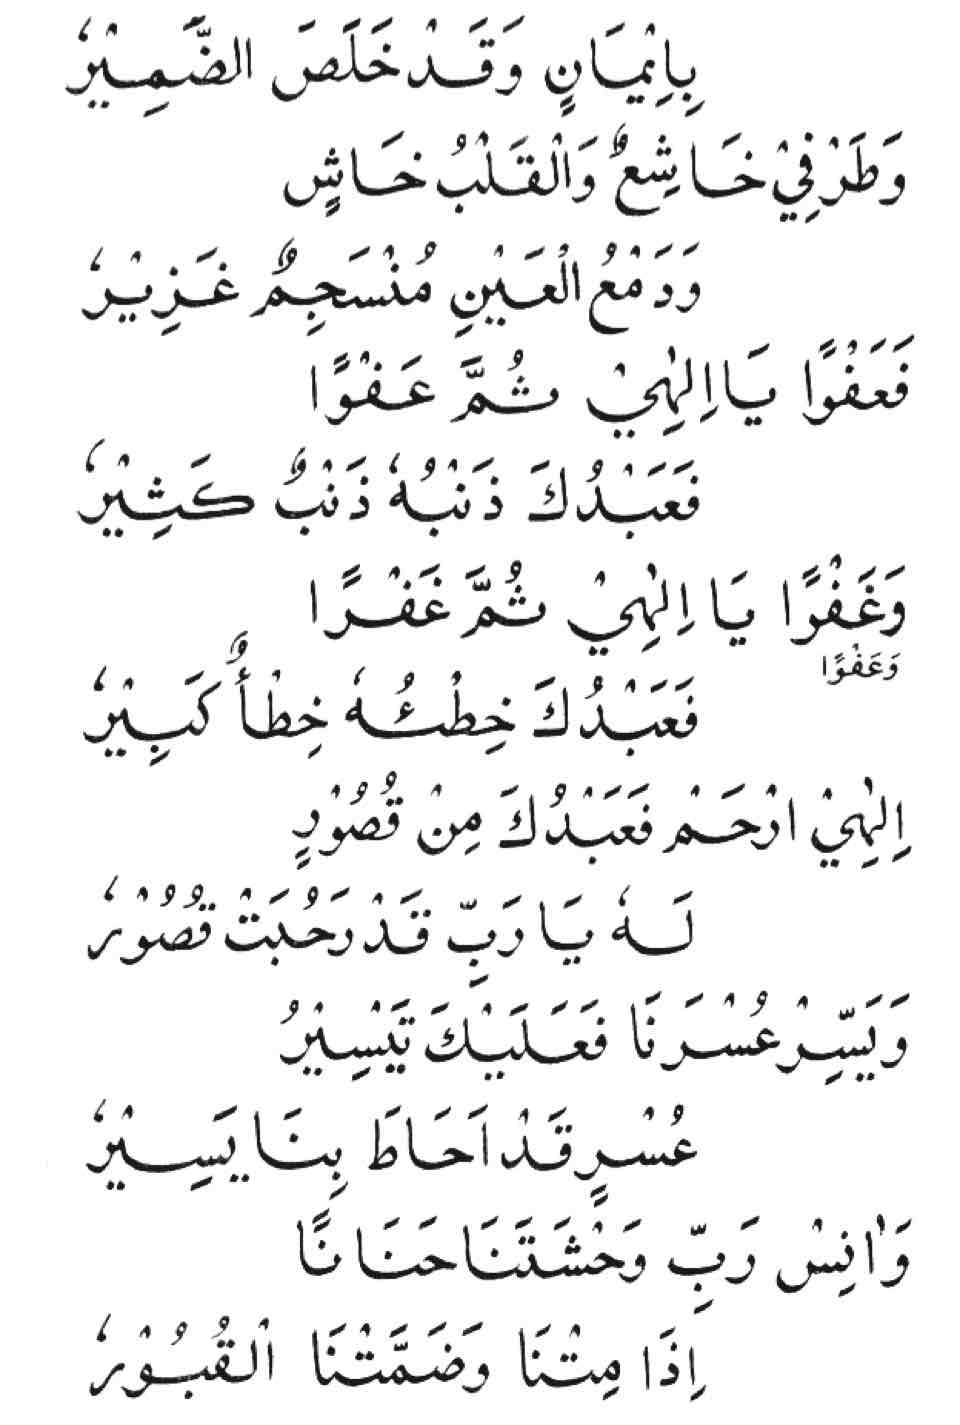 بِاِيْمَانٍ وَقَدْ خَلَصَ الضَّمِيْرُ
وَطَرْفِيْ خَاشِعٌ وَالْقَلْبُ خَاشٍ
وَدَمْعُ الْعَيْنِ مُنْسَجِمٌ غَزِيْرُ
فَعَفْوًا يَا اِلٰهِيْ ثُمَّ عَفْوًا
فَعَبْدُكَ ذَنْبُهٗ ذَنْبٌ كَثِيْرُ
وَغَفْرًا يَا اِلٰهِيْ ثُمَّ غَفْرًا
وَعَفْوًا
فَعَبْدُكَ خِطْئُهٗ خِطْأٌ كَبِيْرُ
اِلٰهِيْ ارْحَمْ فَعَبْدُكَ مِنْ قُصُوْدٍ
لَهٗ يَا رَبِّ قَدْ رَحُبَتْ قُصُوْرُ
وَيَسِّرْ عُسْرَنَا فَعَلَيْكَ تَيْسِيْرُ
عُسْرٍ قَدْ اَحَاطَ بِنَا يَسِيْرُ
وَاٰنِسْ رَبِّ وَحْشَتَنَا حَنَانًا
اِذَا مِتْنَا وَضَمَّتْنَا الْقُبُوْرُ